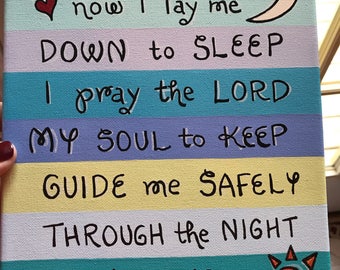 now I lay me
DOWN to SLEEP
I pray the LORD
MY SOUL to KEEP
GUIDE me SAFELY
THROUGH the NIGHT